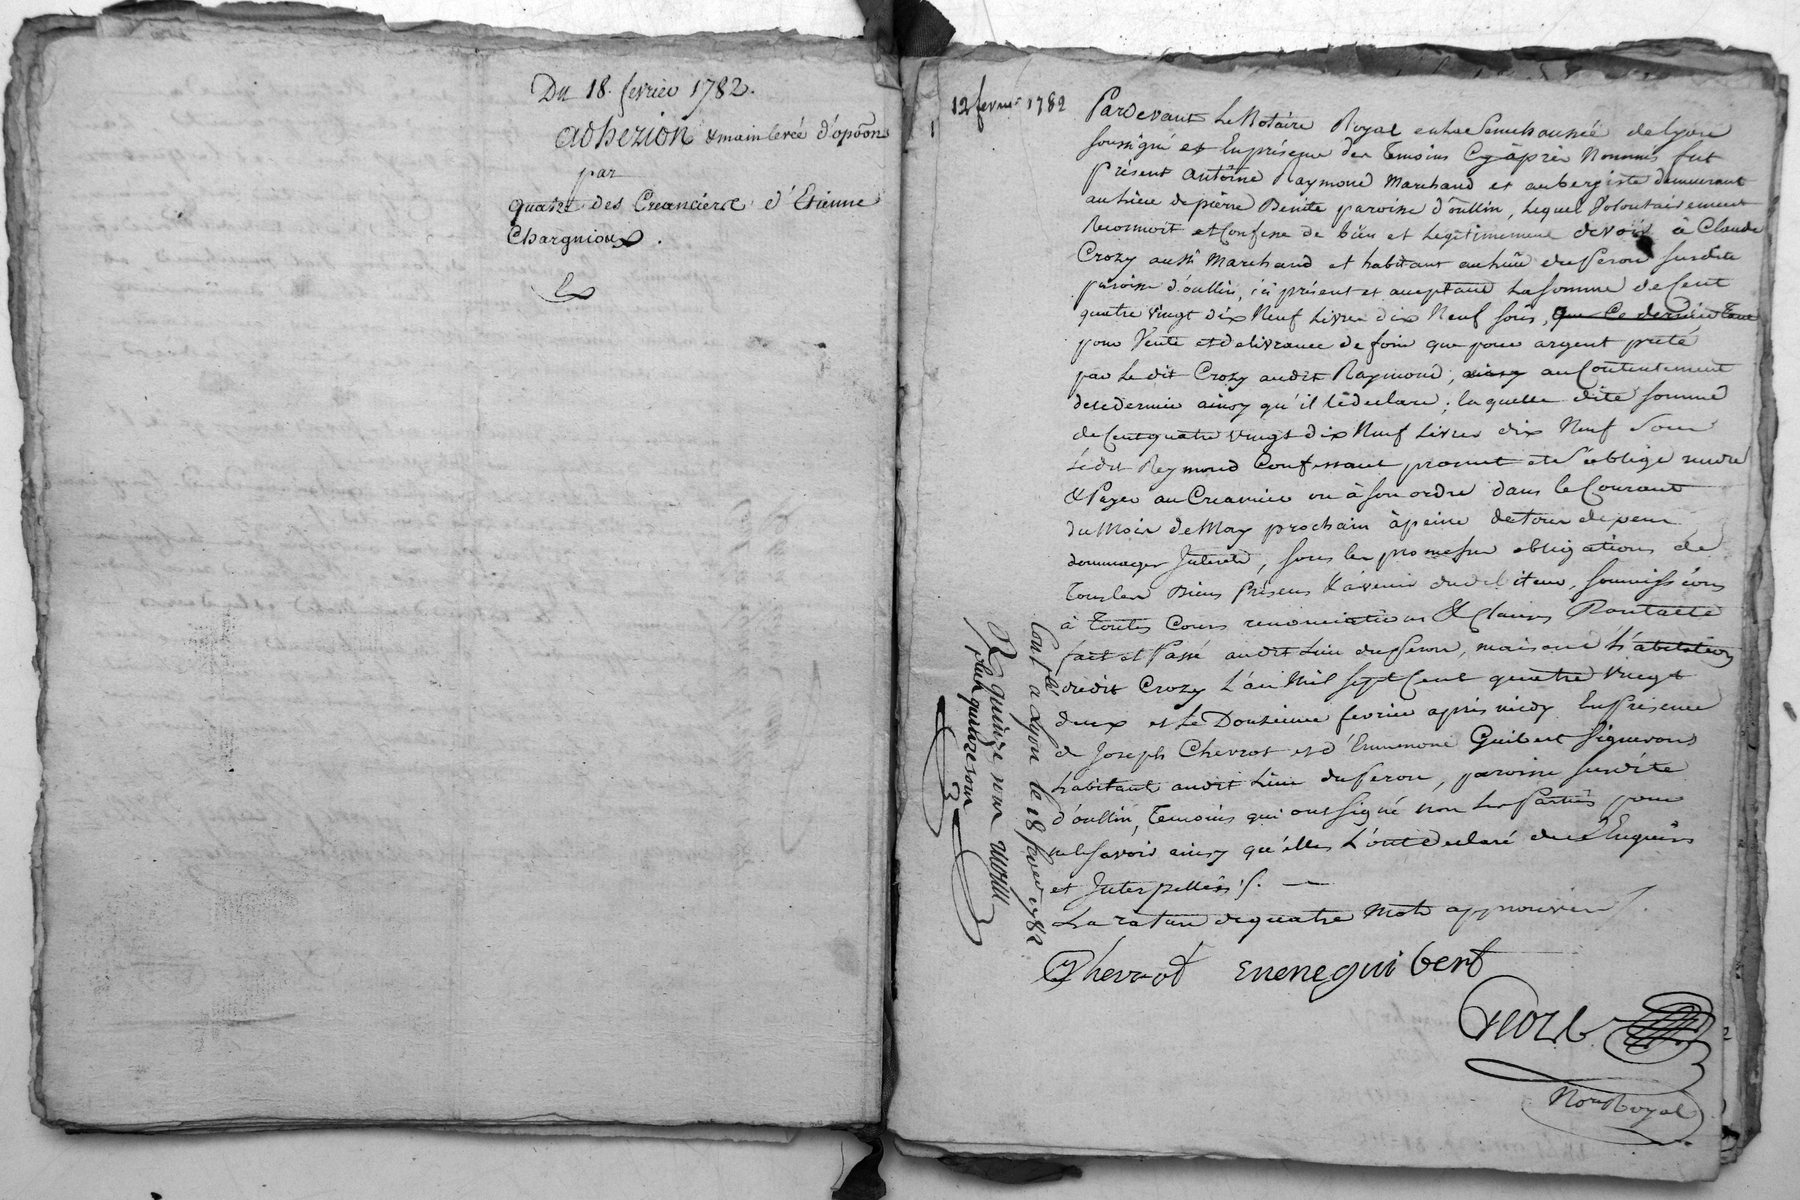 Du 18. fevrier 1782.
adhezion & main levée d'opõon
par
quatre des Creanciers d'Etienne
Chargnioux.
12 fevrier 1782
Pardevant Le Notaire Royal en la Senechaussée de lyon
soussigné et En présence des Temoins Cy après Nommés fut
présent antoine Raymond Marchand et aubergiste demeurant
au Lieu de pierre Benite paroisse d'oullin, Lequel Volontairement
Reconnoit et Confesse de bien et Legitimement devoir à Claude
Crozy aussi Marchand et habitant au Lieu du peron susdite
paroisse d'oullin, ici présent et acceptant La somme de Cent
quatre vingt dix Neuf Livres dix Neuf sous, que Ce dernier Tant
pour Vente et delivrance de foin que pour argent preté
par Le dit Crozy audit Raymond, au Contentement
de ce dernier ainsy qu'il le declare; laquelle dite somme
de Cent quatre vingt dix Neuf Livres dix Neuf sous
Ledit Reymond Confessant promet et s'oblige rendre
& Payer au Creancier ou à son ordre dans le Courant
du Mois de May prochain à peine de tous depens
dommages Interets, sous les promesses obligations de
Tous les Biens Présens & avenir du debiteur, soumissions
à Toutes Cours renonciations & Clauses
fait et Passé audit Lieu du peron, maison d'habitation
dudit Crozy L'an Mil sept Cent quatre vingt
deux et Le Douzieme fevrier après midy En Présence
de Joseph Chevrot et d'Ennemond Guibert Vignerons
habitant audit Lieu du peron, paroisse susdite
d'oullin, Temoins qui ont signé non Les Parties pour
ne le savoir ainsy qu'elles L'ont declaré de ce Enquises
et Interpellées ./.
La rature de quatre Mots approuvée ./.
Chevrot Enneguibert
Not. Royal
Cont.lé a Lyon le 18 fevrier 1782
R quinze sous
plus quinze sous